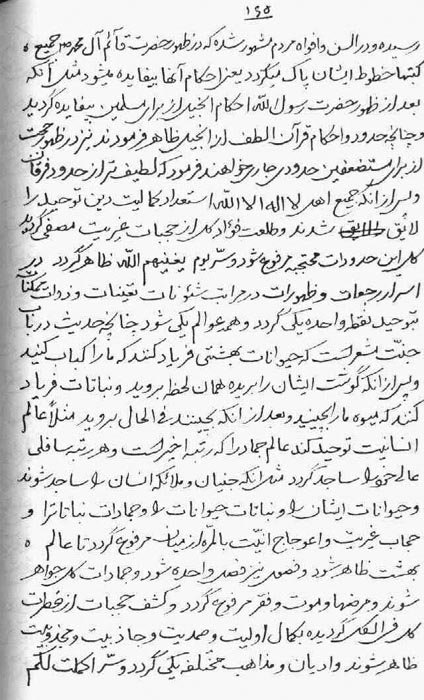 ١٦٥
رسیده و در السن و افواه مردم مشهور شده که در ظهور حضرت قائم آل محمد ص جمیع
کتبها خطوط ایشان پاک میگردد یعنی احکام آنها بیفایده میشود مثل آنکه
بعد از ظهور حضرت رسول الله احکام انجیل از برای مسلمین بیفایده گردید
و چنانچه حدود و احکام قرآن الطف از انجیل ظاهر فرمودند نیز در ظهور حجت
از برای مستضعفین حدودی جاری خواهند فرمود که لطیف تر از حدود فرقان
و پس از آنکه جمیع اهل لا اله الا الله استعداد کمالیت دین توحید را
لایق شدند و طلعت فؤاد کل از حجبات غیریت مصفی گردید
کل این حدودات محتجبه مرفوع شود و سرّ یوم یغنیهم الله ظاهر گردد در
اسرار رجعات و ظهورات در مراتب شئونات تعینات و ذرات ممکنات
توحید نقطه واحده یکی گردد و همه عوالم یکی شود چنانچه حدیث در باب
جنّت مشعر است که حیوانات بهشتی فریاد کنند که ما را کباب کنید
و پس از آنکه گوشت ایشان را بریده همان لحظه بروید و نباتات فریاد
کنند که میوه ما را بچینید و بعد از آنکه بچینند فی الحال بروید مثلاً عالم
انسانیت توحید کند عالم جماد را که رتبه اخیر است و هر رتبه سافلی
عالی خود را ساجد گردد مثل آنکه جنیان و ملائکه انسان را ساجد شوند
و حیوانات ایشان را و نباتات حیوانات را و جمادات نباتاترا و
حجاب غیریت و اعوجاج انیّت بالمرّه از میان مرفوع گردد تا عالم
بهشت ظاهر شود و فصول نیز فصل واحده شود و جمادات کل جواهر
شوند و مرضها و موت و فقر مرفوع گردد و کشف حجبات از فطرت
کل گردیده بکمال اولیت و صمدیت و جاذبیت و مجذوبیت
ظاهر شوند و ادیان و مذاهب مختلفه یکی گردد و سرّ اکملت لکم